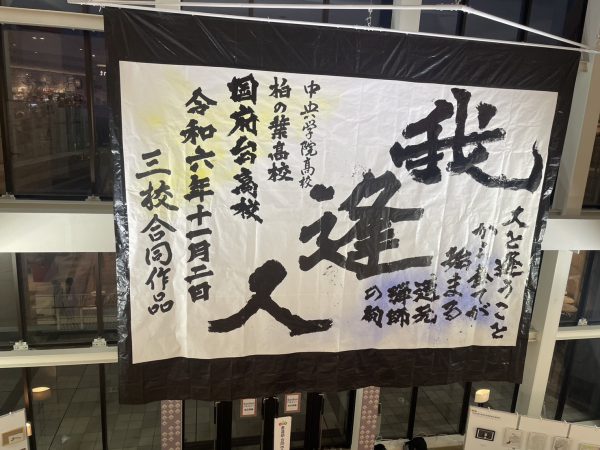 我
逢
人
人と逢うこと
から全てが
始まる
道元
禅師
の
中央学院高校
柏の葉高校
国府台高校
令和六年十一月二日
三校合同作品